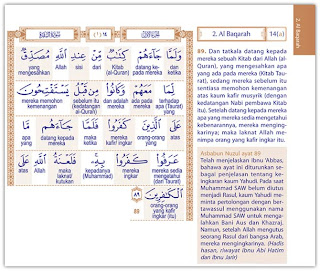 2. Al Baqarah 14(a)
2. Al Baqarah
وَلَمَّا جَاءَهُمْ كِتَابٌ مِنْ عِنْدِ اللَّهِ مُصَدِّقٌ
dan ketika datang kepada mereka kitab (al-Quran) dari sisi Allah yang mengesahkan
لِمَا مَعَهُمْ وَكَانُوا مِنْ قَبْلُ يَسْتَفْتِحُونَ
terhadap apa (Taurat) yang ada pada mereka dan adalah mereka sebelum itu (kedatangan al-Quran) mereka memohon kemenangan
عَلَى الَّذِينَ كَفَرُوا فَلَمَّا جَاءَهُمْ مَا
atas orang-orang yang mereka ingkar/kafir maka ketika datang kepada mereka apa yang
عَرَفُوا كَفَرُوا بِهِ فَلَعْنَةُ اللَّهِ عَلَى
mereka ketahui mereka ingkar kepadanya (Muhammad) maka laknat/kutukan Allah atas
الْكَافِرِينَ ٨٩
orang-orang yang kafir ingkar (itu) 89
89. Dan tatkala datang kepada
mereka sebuah Kitab dari Allah (al-
Quran), yang mengesahkan apa
yang ada pada mereka (Kitab Tau-
rat), sedang mereka sebelum itu
sentiasa memohon kemenangan
atas kaum kafir musyrik (dengan
kedatangan Nabi pembawa Kitab
itu). Setelah datang kepada mereka
apa yang mereka sedia mengetahui
kebenarannya, mereka mengingk-
arinya; maka laknat Allah me-
nimpa orang yang kafir ingkar itu.
Asbabun Nuzul ayat 89
Telah menjelaskan Ibnu Abbas,
bahawa ayat ini diturunkan se-
bagai penjelasan tentang ke-
ingkaran kaum Yahudi. Pada saat
Muhammad SAW belum diutus
sebagai Rasul, kaum Yahudi me-
minta pertolongan dengan ber-
tawassul menggunakan nama
Muhammad SAW untuk menga-
lahkan Bani Aus dan Khazraj.
Namun, setelah Allah mengutus
seorang Rasul dari bangsa Arab,
mereka mengingkarinya. (Hadis
hasan, riwayat Ibnu Abi Hatim
dan Ibnu Jarir)